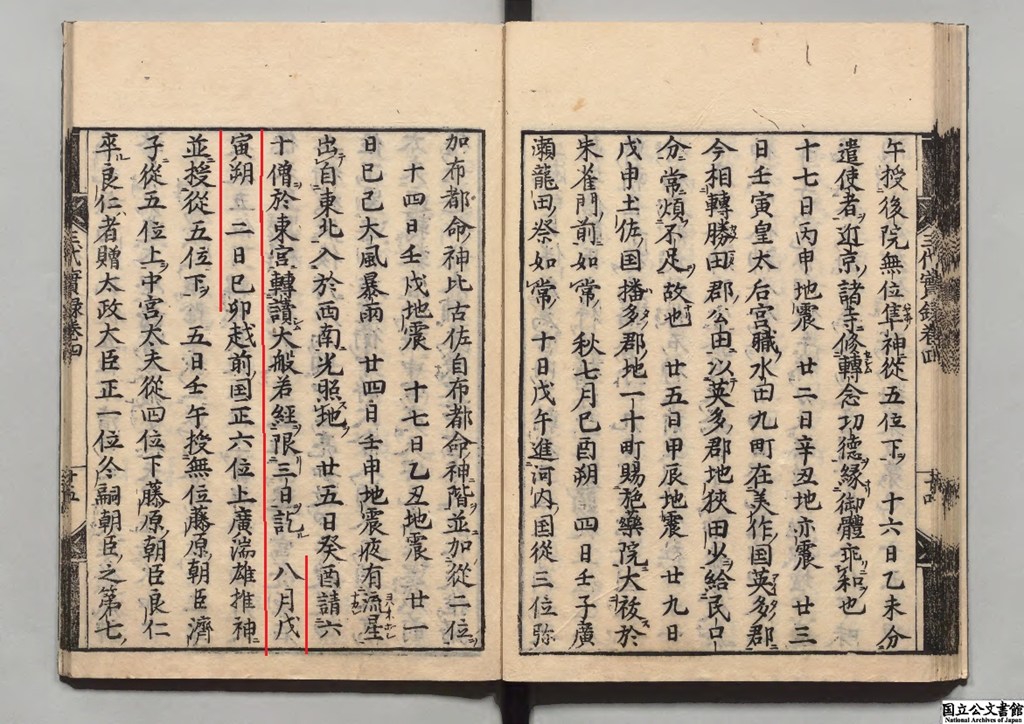 午授後院無位隼神從五位下 十六日乙未分
遣使者近京諸寺修轉念功德緣御體乖和也
十七日丙申地震 廿二日辛丑地亦震 廿三
日壬寅皇太后宮職水田九町在美作国英多郡
今相轉勝田郡公田以英多郡地狹田少給民口
分常煩不足故也 廿五日甲辰地震 廿九日
戊申土佐国播多郡地一十町賜施藥院大祓於
朱雀門前如常 秋七月己酉朔 四日壬子廣
瀬龍田祭如常 十日戊午進河内国從三位弥
三代實録卷四
十四
加布都命神比古佐自布都命神階並加從二位
十四日壬戌地震 十七日乙丑地震 廿一
日己巳大風暴雨 廿四日壬申地震夜有流星
出自東北入於西南光照地 廿五日癸酉請六
十僧於東宮轉讀大般若經限三日訖 八月戊
寅朔 二日己卯越前国正六位上廣湍雄推神
並授從五位下 五日壬午授無位藤原朝臣濟
子從五位上中宮大夫從四位下藤原朝臣良仁
卒良仁者贈太政大臣正一位冬嗣朝臣之第七
三代實録卷四
十五
国立公文書館
National Archives of Japan